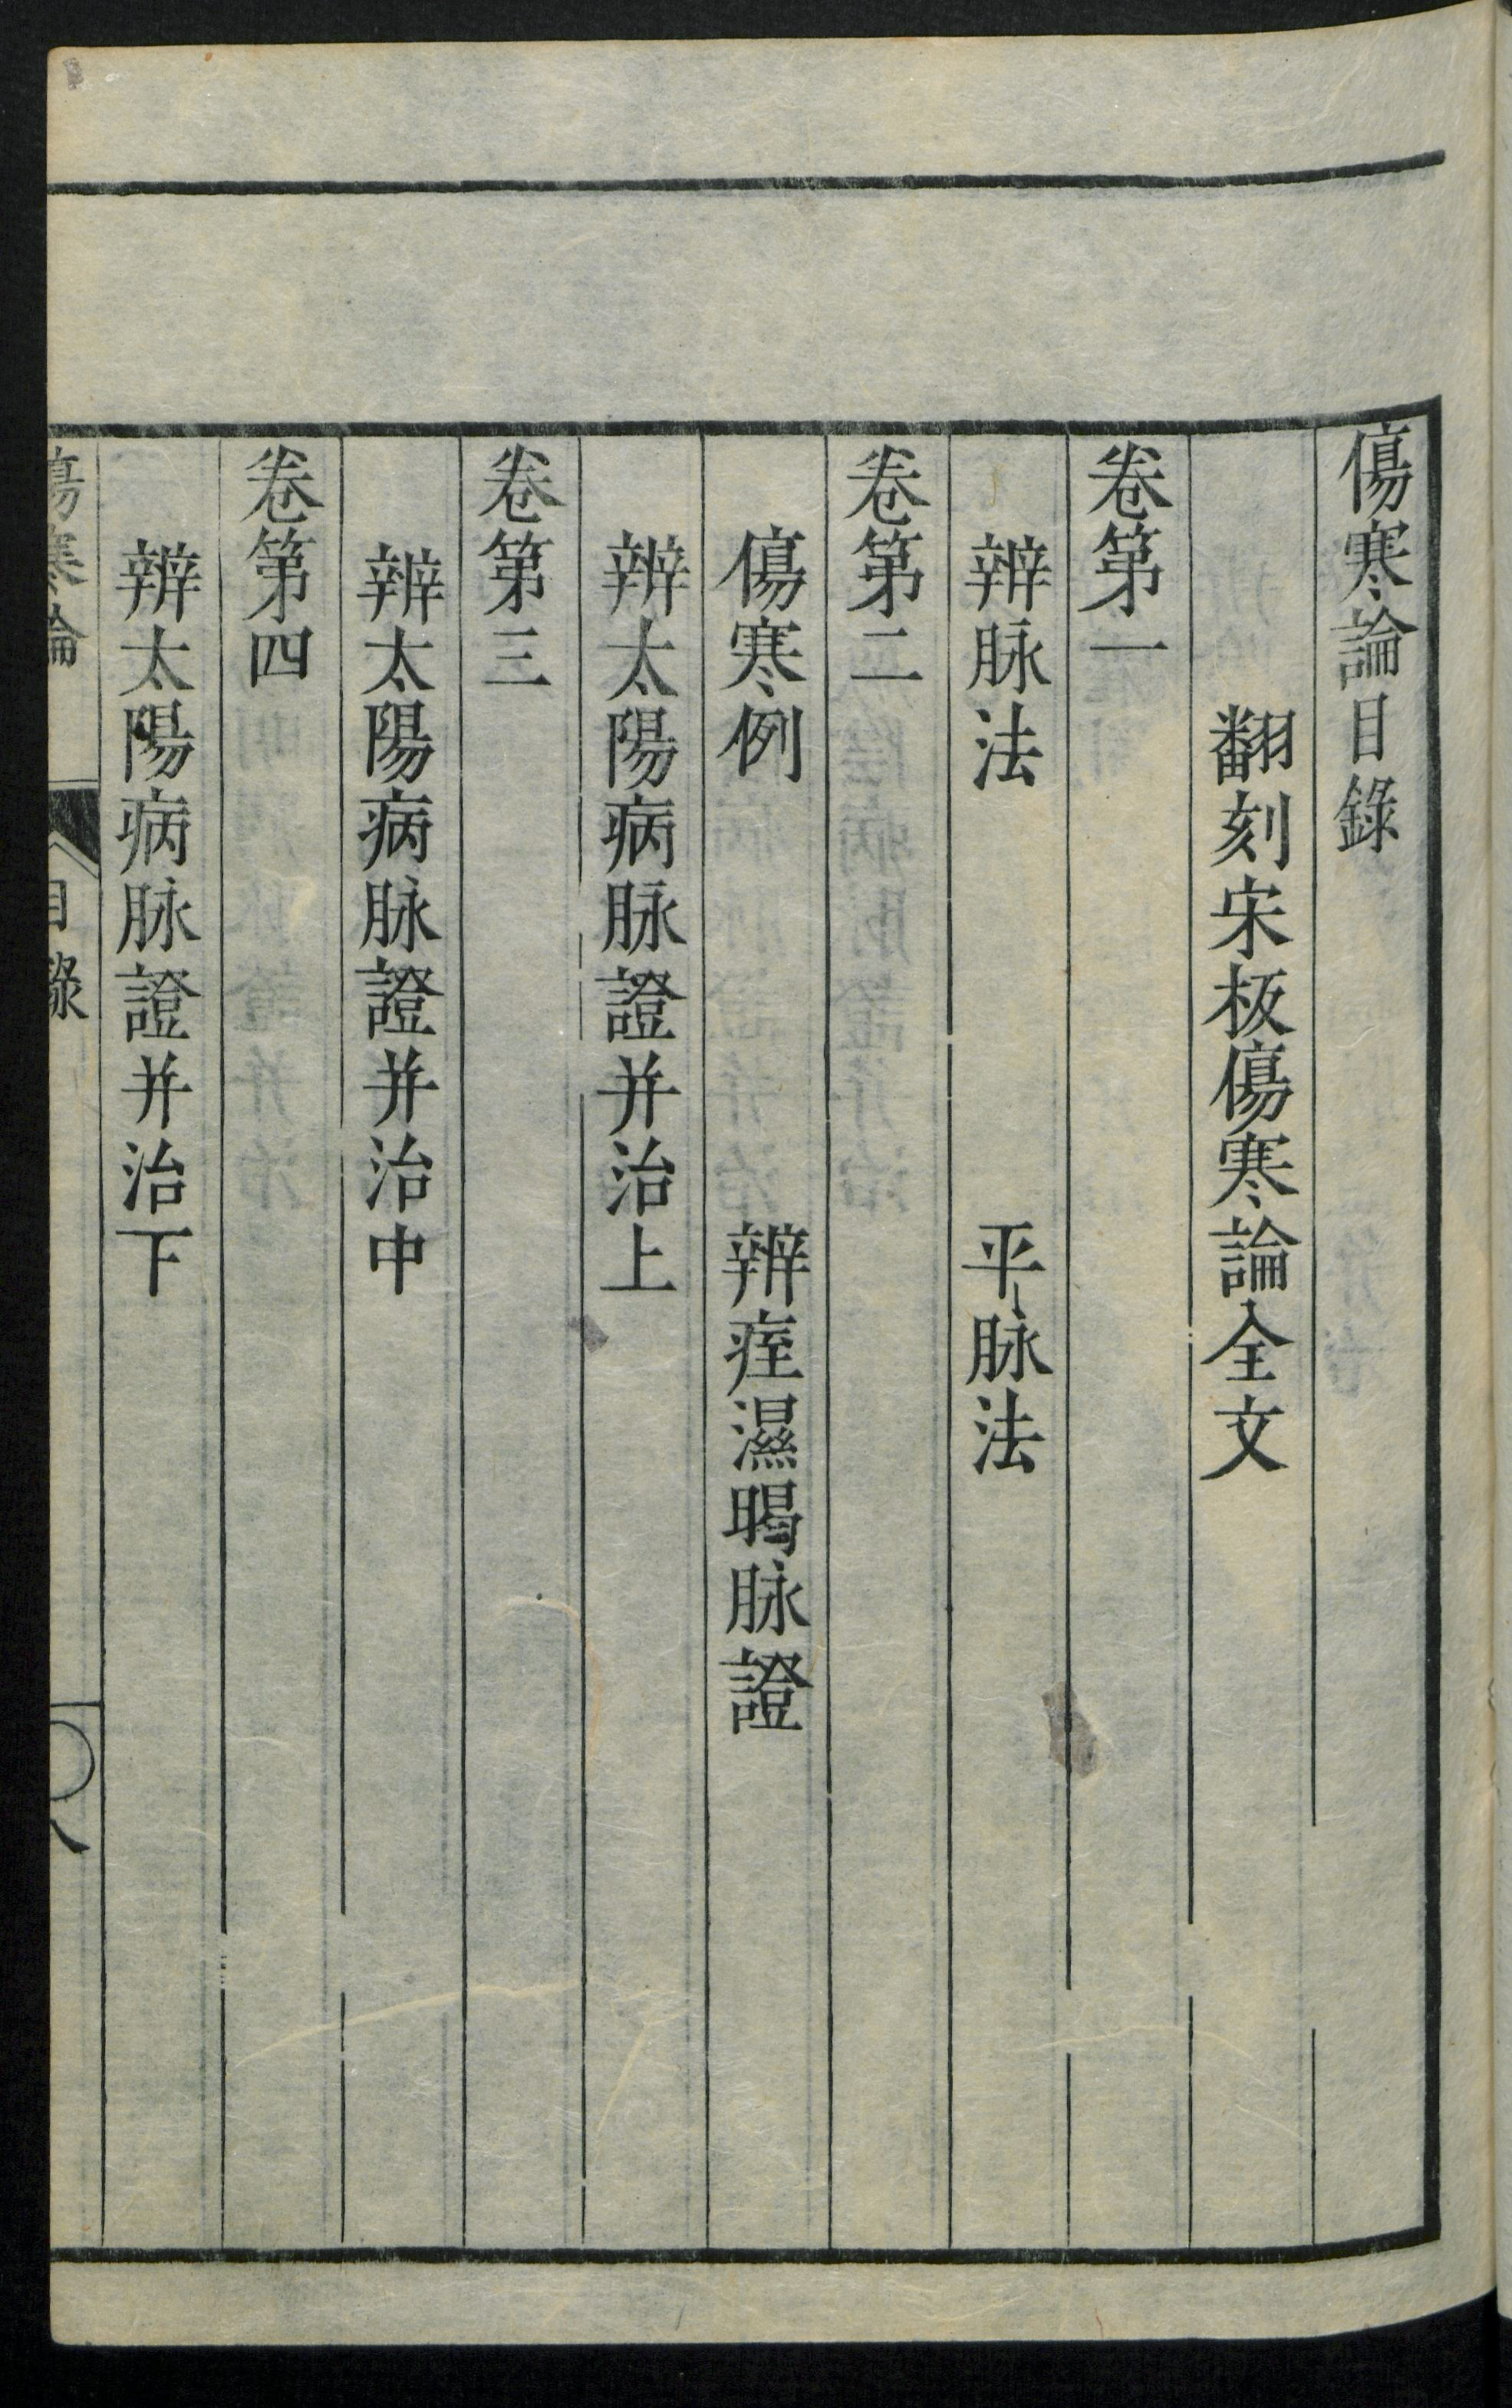 傷寒論目錄
翻刻宋板傷寒論全文
卷第一
辨脉法 平脉法
卷第二
傷寒例 辨痓濕暍脉證
辨太陽病脉證并治上
卷第三
辨太陽病脉證并治中
卷第四
辨太陽病脉證并治下
傷寒論 目錄